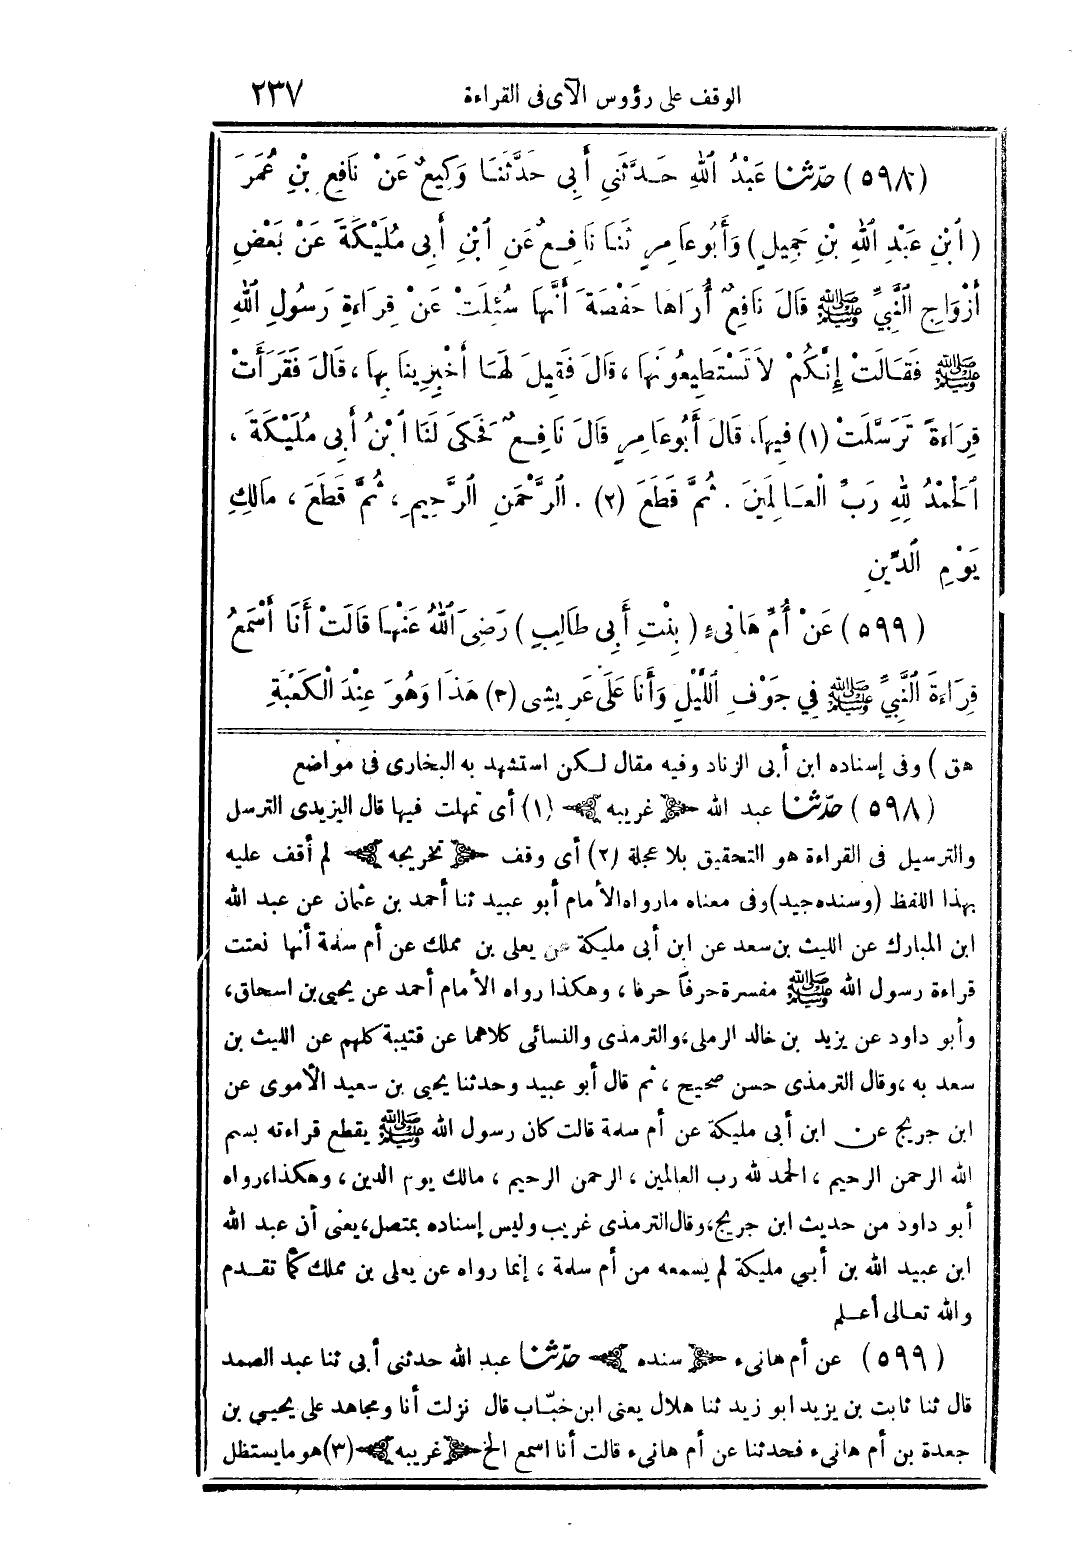 الوقف على رؤوس الآى فى القراءة ٢٣٧
(٥٩٨) حدّثنا عَبْدُ ٱللهِ حَدَّثَنِي أَبِى حَدَّثَنَا وَكِيعٌ عَنْ نَافِعِ بْنِ عُمَرَ
(ٱبْنِ عَبْدِ ٱللهِ بْنِ جَمِيلٍ) وَأَبُو عَامِرٍ ثَنَا نَافِعٌ عَنِ ٱبْنِ أَبِى مُلَيْكَةَ عَنْ بَعْضِ
أَزْوَاجِ ٱلنَّبِيِّ ﷺ قَالَ نَافِعٌ أُرَاهَا حَفْصَةَ أَنَّهَا سُئِلَتْ عَنْ قِرَاءَةِ رَسُولِ ٱللهِ
ﷺ فَقَالَتْ إِنَّكُمْ لاَ تَسْتَطِيعُونَهَا، قَالَ فَقِيلَ لَهَا أَخْبِرِينَا بِهَا، قَالَ فَقَرَأَتْ
قِرَاءَةً تَرَسَّلَتْ (١) فِيهَا، قَالَ أَبُو عَامِرٍ قَالَ نَافِعٌ فَحَكَى لَنَا ٱبْنُ أَبِى مُلَيْكَةَ،
ٱلْحَمْدُ لِلهِ رَبِّ الْعَالَمِينَ . ثُمَّ قَطَعَ (٢) . ٱلرَّحْمَنِ ٱلرَّحِيمِ، ثُمَّ قَطَعَ، مَالِكِ
يَوْمِ ٱلدِّينِ
(٥٩٩) عَنْ أُمِّ هَانِىءٍ (بِنْتِ أَبِى طَالِبٍ) رَضِىَ ٱللهُ عَنْهَا قَالَتْ أَنَا أَسْمَعُ
قِرَاءَةَ ٱلنَّبِيِّ ﷺ فِي جَوْفِ ٱللَّيْلِ وَأَنَا عَلَى عَرِيشِى (٣) هَذَا وَهُوَ عِنْدَ الْكَعْبَةِ
هق) وفى إسناده ابن أبى الزناد وفيه مقال لكن استشهد به البخارى فى مواضع
(٥٩٨) حدّثنا عبد الله ﴿غريبه﴾ (١) أى تمهلت فيها قال اليزيدى الترسل
والترسيل فى القراءة هو التحقيق بلا عجلة (٢) أى وقف ﴿تخريجه﴾ لم أقف عليه
بهذا اللفظ (وسنده جيد) وفى معناه مارواه الأمام أبو عبيد ثنا أحمد بن عثمان عن عبد الله
ابن المبارك عن الليث بن سعد عن ابن أبى مليكة عن يعلى بن مملك عن أم سلمة أنها نعتت
قراءة رسول الله ﷺ مفسرة حرفاً حرفا، وهكذا رواه الأمام أحمد عن يحيى بن اسحاق،
وأبو داود عن يزيد بن خالد الرملى، والترمذى والنسائى كلاهما عن قتيبة كلهم عن الليث بن
سعد به، وقال الترمذى حسن صحيح، ثم قال أبو عبيد وحدثنا يحيى بن سعيد الأموى عن
ابن جريج عن ابن أبى مليكة عن أم سلمة قالت كان رسول الله ﷺ يقطع قراءته بسم
الله الرحمن الرحيم، الحمد لله رب العالمين، الرحمن الرحيم، مالك يوم الدين، وهكذا، رواه
أبو داود من حديث ابن جريج، وقال الترمذى غريب وليس إسناده بمتصل، يعنى أن عبد الله
ابن عبيد الله بن أبي مليكة لم يسمعه من أم سلمة، إنما رواه عن يعلى بن مملك كما تقدم
والله تعالى أعلم
(٥٩٩) عن أم هانىء ﴿سنده﴾ حدّثنا عبد الله حدثنى أبى ثنا عبد الصمد
قال ثنا ثابت بن يزيد ابو زيد ثنا هلال يعنى ابن خبّاب قال نزلت أنا ومجاهد على يحيى بن
جعدة بن أم هانىء فحدثنا عن أم هانىء قالت أنا اسمع الخ ﴿غريبه﴾ (٣) هو ما يستظل